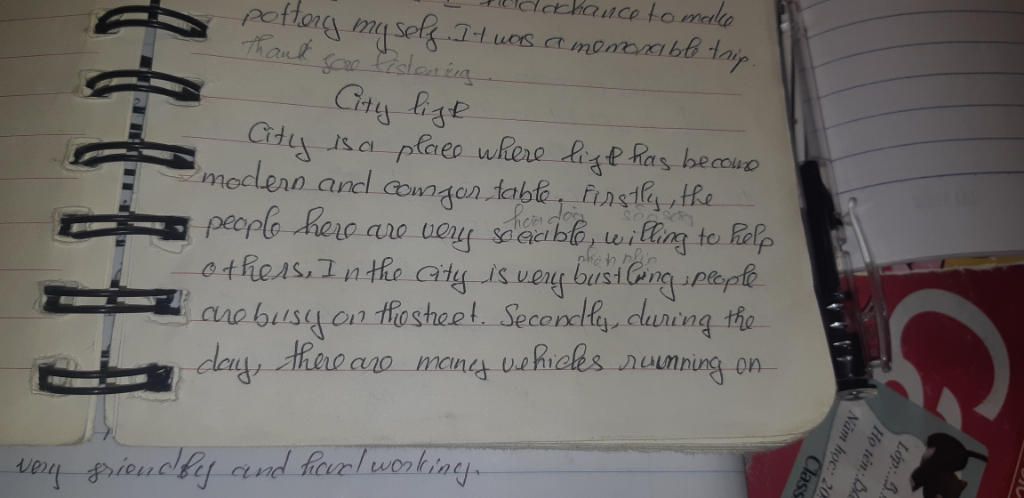 chance to make
pottery my self. It was a memorable trip.
Thank soo listening.
City life
City is a place where life has become
modern and comfortable. Firstly, the
people here are very sociable, willing to help
others. In the city is very bustling, people
are busy on the street. Secondly, during the
day, there are many vehicles running on
very friendly and hard working.
Lớp:
Họ tên:
Năm học: 20
Class